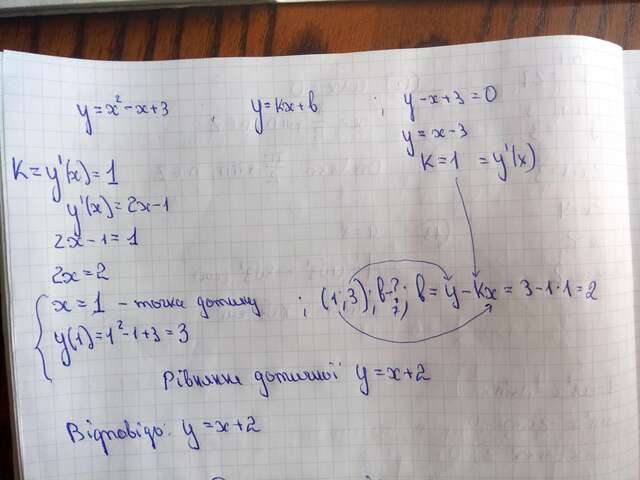 y = x² - x + 3 , y = kx + b ; y - x + 3 = 0
y = x - 3
K = y'(x) = 1
K = 1 = y'(x)
y'(x) = 2x - 1
2x - 1 = 1
2x = 2
x = 1 - точка дотику ; (1; 3); b - ?; b = y - kx = 3 - 1·1 = 2
y(1) = 1² - 1 + 3 = 3
Рівняння дотичної y = x + 2
Відповідь: y = x + 2